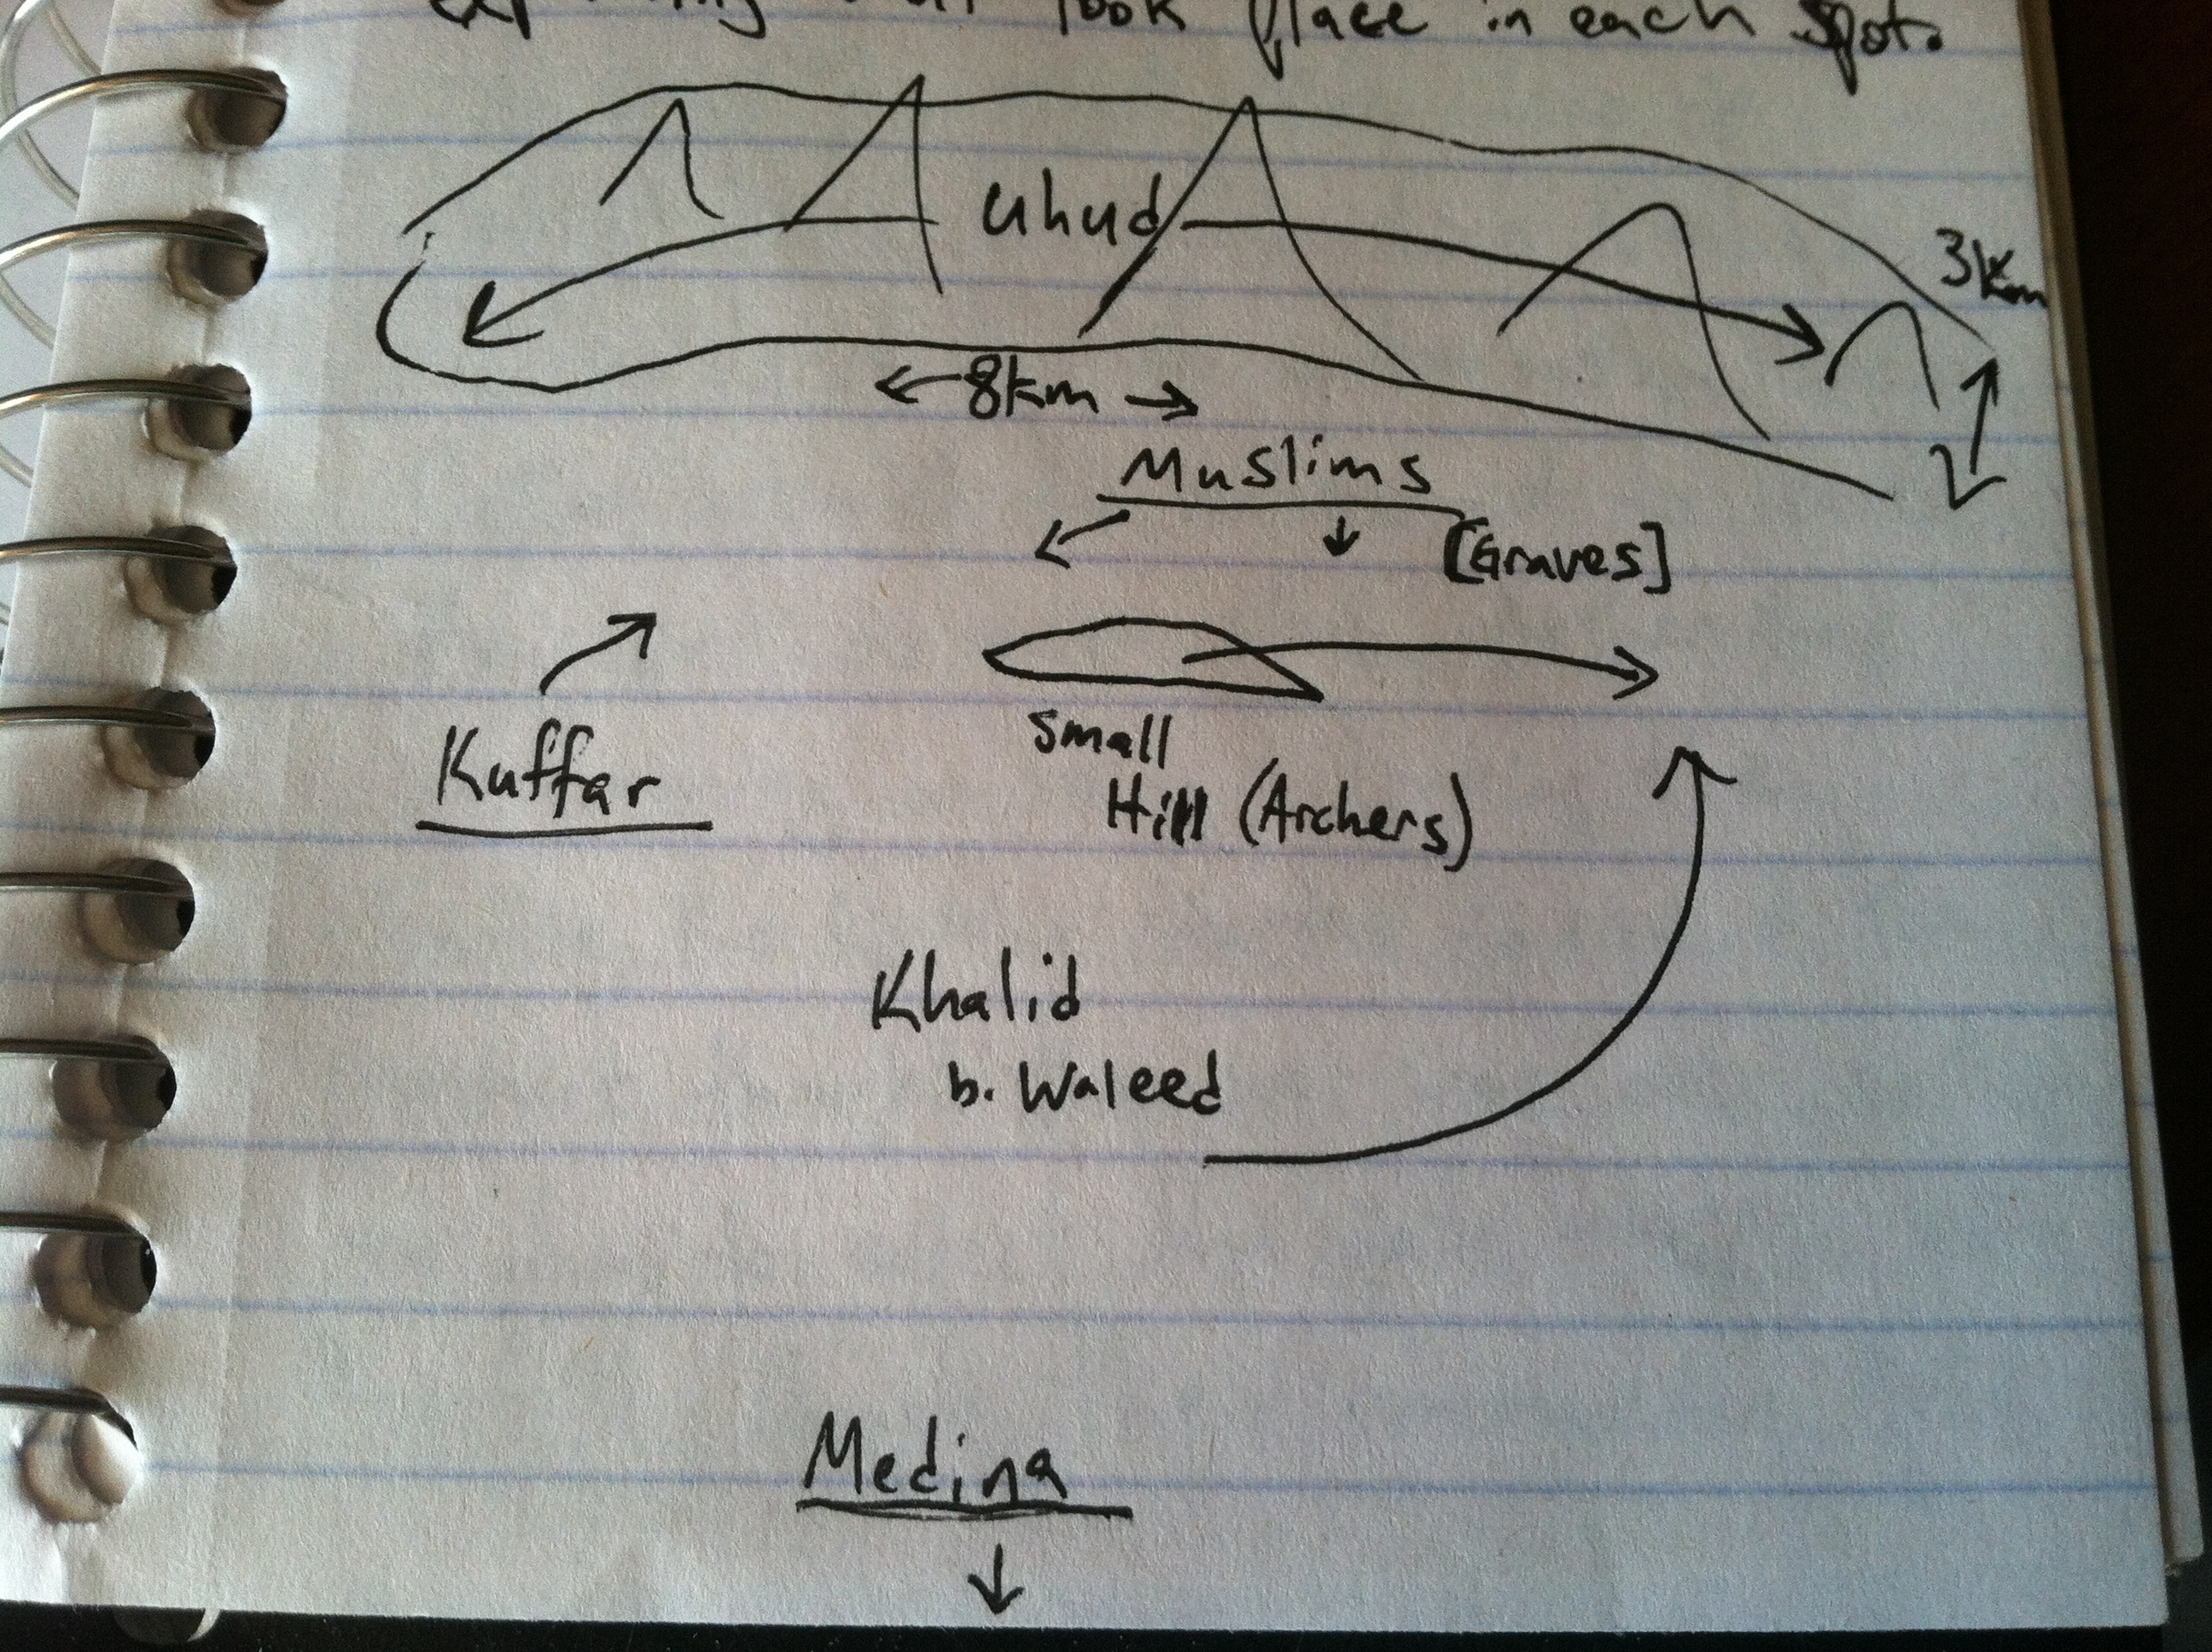 took place in each spot.
Uhud
3km
8km
Muslims
[Graves]
Kuffar
Small
Hill (Archers)
Khalid
b. Waleed
Medina